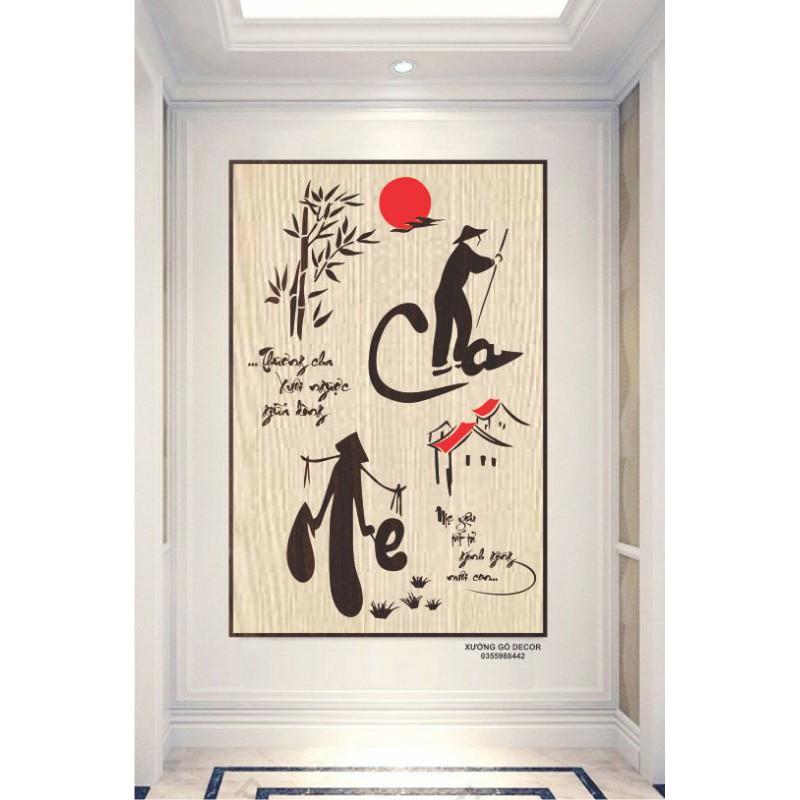 Cha
...Thương cha
xuôi ngược
gian nan
Mẹ
Mẹ yêu
gánh gồng
nuôi con...
XƯỞNG GỖ DECOR
0355988442